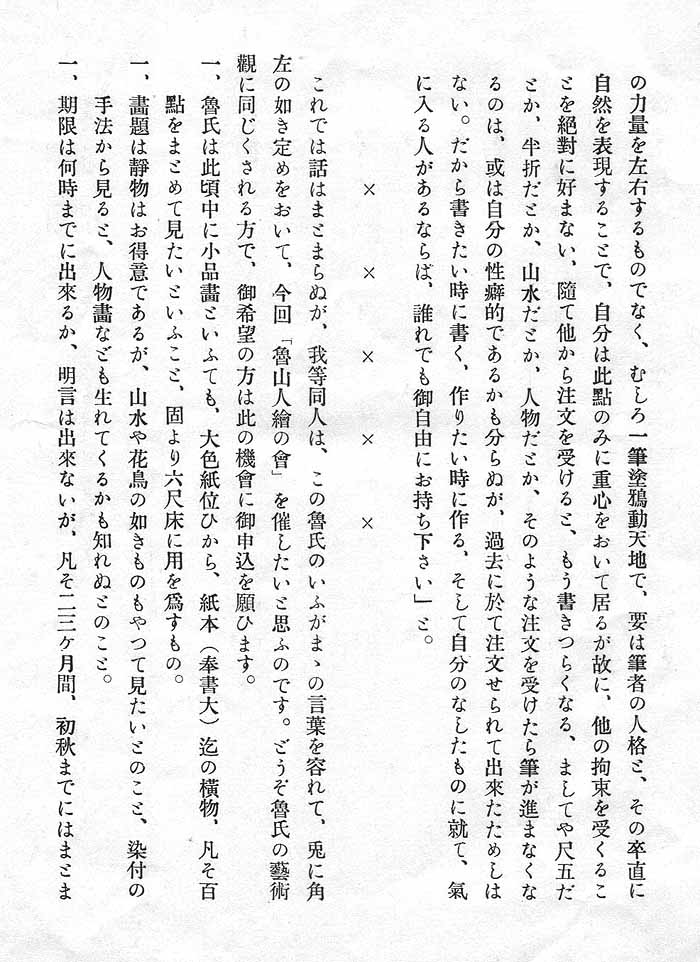 の力量を左右するものでなく、むしろ一筆塗鴉動天地で、要は筆者の人格と、その卒直に
自然を表現することで、自分は此點のみに重心をおいて居るが故に、他の拘束を受くるこ
とを絕對に好まない、隨て他から注文を受けると、もう書きつらくなる、ましてや尺五だ
とか、半折だとか、山水だとか、人物だとか、そのような注文を受けたら筆が進まなくな
るのは、或は自分の性癖的であるかも分らぬが、過去に於て注文せられて出來たためしは
ない。だから書きたい時に書く、作りたい時に作る、そして自分のなしたものに就て、氣
に入る人があるならば、誰れでも御自由にお持ち下さい」と。
× × × × ×
これでは話はまとまらぬが、我等同人は、この魯氏のいふがまゝの言葉を容れて、兎に角
左の如き定めをおいて、今回「魯山人繪の會」を催したいと思ふのです。どうぞ魯氏の藝術
觀に同じくされる方で、御希望の方は此の機會に御申込を願ひます。
一、魯氏は此頃中に小品畫といふても、大色紙位ひから、紙本（奉書大）迄の橫物、凡そ百
點をまとめて見たいといふこと、固より六尺床に用を爲すもの。
一、畫題は靜物はお得意であるが、山水や花鳥の如きものもやつて見たいとのこと、染付の
手法から見ると、人物畫なども生れてくるかも知れぬとのこと。
一、期限は何時までに出來るか、明言は出來ないが、凡そ二三ケ月間、初秋までにはまとま